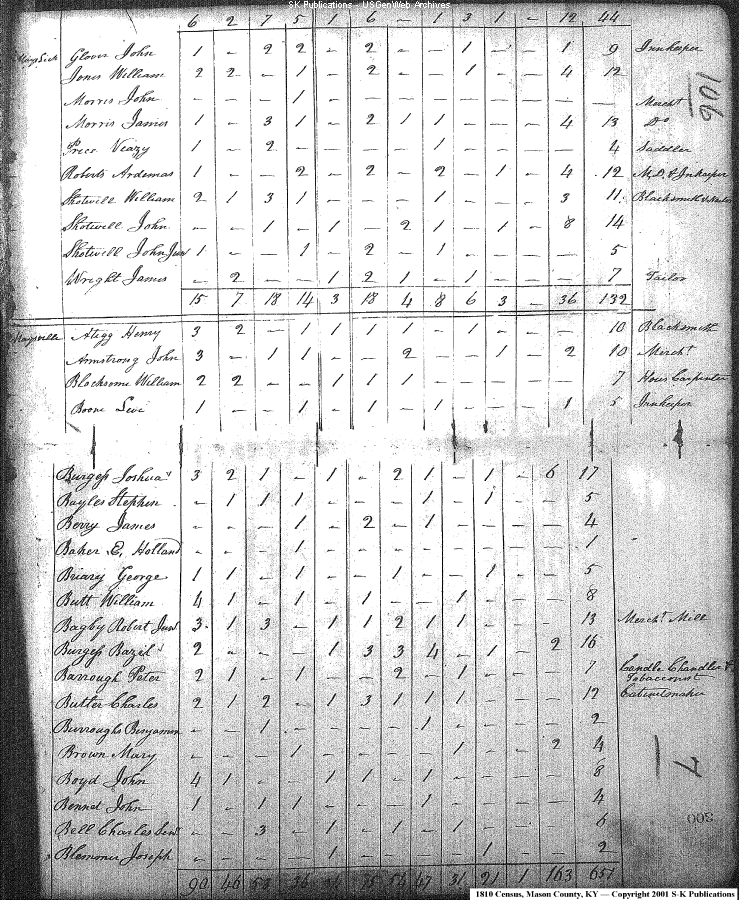 SK Publications - USGenWeb Archives
6 2 7 5 1 6 – 1 3 1 – 12 44
Glover John 1 – 2 2 – 2 – – 1 – – 1 9 Innkeeper
Jones William 2 2 – 1 – 2 – – 1 – – 4 12
Morris John – – – 1 – – – – – – – – – Mercht
Morris James 1 – 3 1 – 2 1 1 – – – 4 13 Do
Veazy 1 – 2 – – – – 1 – – – – 4 Saddler
Roberts Ardemas 1 – – 2 – 2 – 2 – 1 – 4 12 M.D. & Innkeeper
Shotwell William 2 1 3 1 – – – 1 – – – 3 11 Blacksmith &
Shotwell John – – 1 – 1 – 2 1 – 1 – 8 14
Shotwell John Junr 1 – – 1 – 2 – 1 – – – – 5
Wright James – 2 – – 1 2 1 – 1 – – – 7 Tailor
15 7 18 14 3 18 4 8 6 3 – 36 132
Maysville
Henry 3 2 – 1 1 1 1 – 1 – – – 10 Blacksmith
Armstrong John 3 – 1 1 – – 2 – – 1 – 2 10 Mercht
Blacksome William 2 2 – – 1 1 1 – – – – – 7 Hous Carpenter
Boone Levi 1 – – 1 – 1 – 1 – – – 1 5 Innkeeper
Burgess Joshua 3 2 1 – 1 – 2 1 – 1 – 6 17
Bayles Stephen – 1 1 1 – – – 1 – 1 – – 5
Berry James – – – 1 – 2 – 1 – – – – 4
Baker E, Holland – – – 1 – – – – – – – – 1
Briary George 1 1 – 1 – – 1 – – 1 – – 5
Butt William 4 1 – 1 – 1 – – 1 – – – 8
Bagby Robert Junr 3 1 3 – 1 1 2 1 1 – – – 13 Mercht Mill
Burgess Bazil 2 – – – 1 3 3 4 – 1 – 2 16
Barrough Peter 2 1 – 1 – – 2 – 1 – – – 7 Candle Chandler &
Tobacconist
Butler Charles 2 1 2 – 1 3 1 1 1 – – – 12 Cabinetmaker
Burroughs Benjamin – – 1 – – – – 1 – – – – 2
Brown Mary – – – 1 – – – – 1 – – 2 4
Boyd John 4 1 – – 1 1 – 1 – – – – 8
Bennet John 1 – 1 1 – – – 1 – – – – 4
Bell Charles Senr – – 3 – 1 – 1 – 1 – – – 6
Joseph – – – – 1 – – – – 1 – – 2
90 46 31 21 1 163 651
106
7
300
1810 Census, Mason County, KY — Copyright 2001 S-K Publications